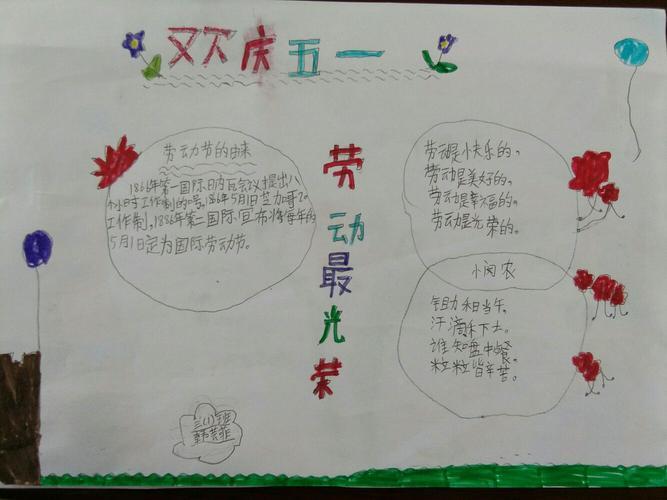 欢庆五一
劳动节的由来
1864年第一国际日内瓦会议提出八
小时工作制的口号,1886年5月1日芝加哥20
工作制,1886年第二国际宣布将每年的
5月1日定为国际劳动节。
劳动最光荣
劳动是小快乐的,
劳动是美好的,
劳动是幸福的。
劳动是光荣的。
小悯农
锄禾日当午。
汗滴禾下土。
谁知盘中餐。
粒粒皆辛苦。
三(1)班
韩芸菲